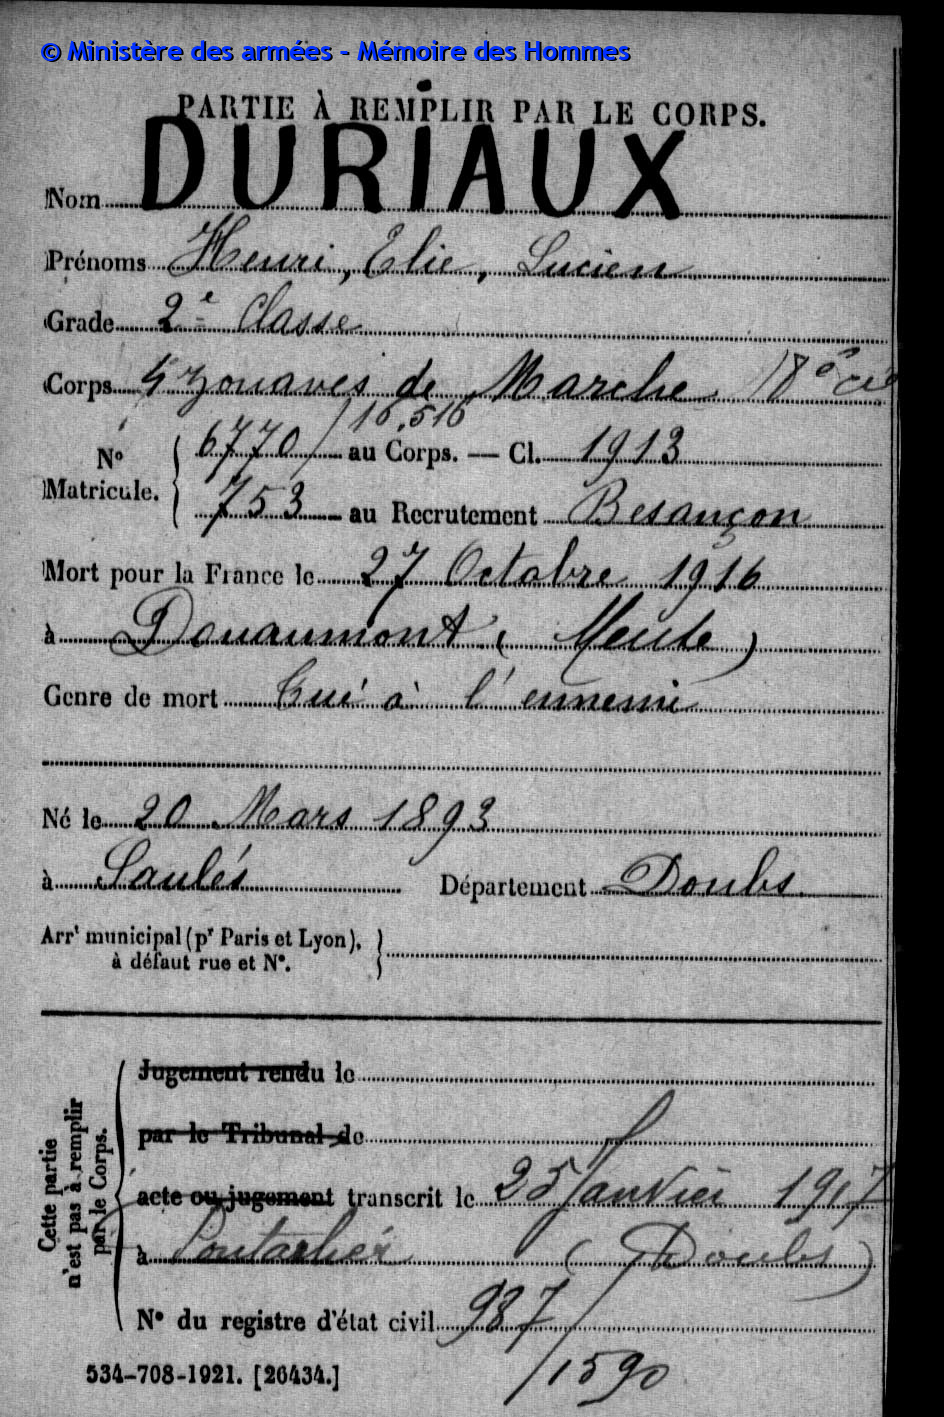 © Ministère des armées - Mémoire des Hommes
PARTIE À REMPLIR PAR LE CORPS.
Nom DURIAUX
Prénoms Henri, Elie, Lucien
Grade 2e Classe
Corps 4 zouaves de Marche 18e Cie
No Matricule. 6770 / 16.516 au Corps. — Cl. 1913
753 au Recrutement Besançon
Mort pour la France le 27 Octobre 1916
à Douaumont (Meuse)
Genre de mort Tué à l'ennemi
Né le 20 Mars 1893
à Saulés Département Doubs
Arrt municipal (pr Paris et Lyon),
à défaut rue et N°.
Cette partie n'est pas à remplir par le Corps.
Jugement rendu le
par le Tribunal de
acte ou jugement transcrit le 25 Janvier 1917
à Pontarlier (Doubs)
N° du registre d'état civil 987 / 1590
534-708-1921. [26434.]